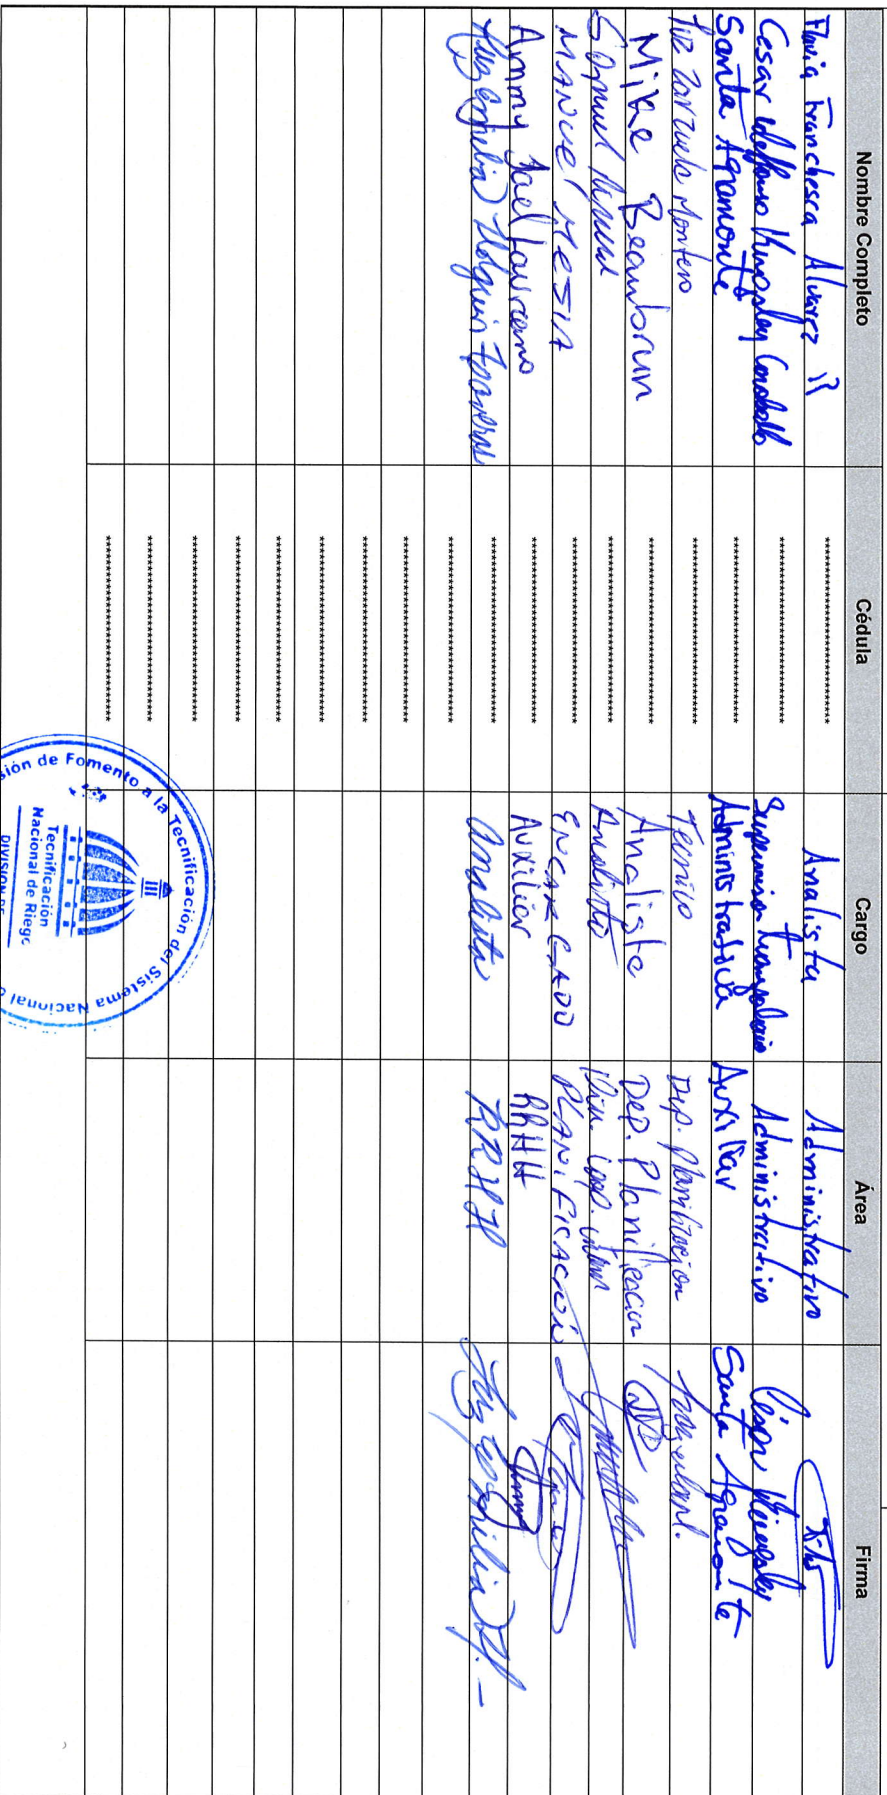 Nombre Completo Cédula Cargo Área Firma
Flavia Franchesca Alvarez R ****************************************** Analista Administrativo
Cesar Kingsley ****************************************** Supervisor Administrativo Cesar Kingsley
Santa Agramonte ****************************************** Administrativa Auxiliar Santa Agramonte
Luz Zarzuela Montero ****************************************** Técnico Dep. Planificacion
Mike Beaubrun ****************************************** Analista Dep. Planificacion
Samuel ****************************************** Analista
MANUEL MESIA ****************************************** ENCARGADO PLANIFICACIÓN
Ammy Jael Laureano ****************************************** Auxiliar RRHH Ammy
Luz Holguin ****************************************** Analista RRHH Luz
******************************************
******************************************
******************************************
******************************************
******************************************
******************************************
******************************************
******************************************
******************************************
sión de Fomento a la Tecnificación del Sistema Nacional d
Tecnificación
Nacional de Riego
DIVISIÓN DE